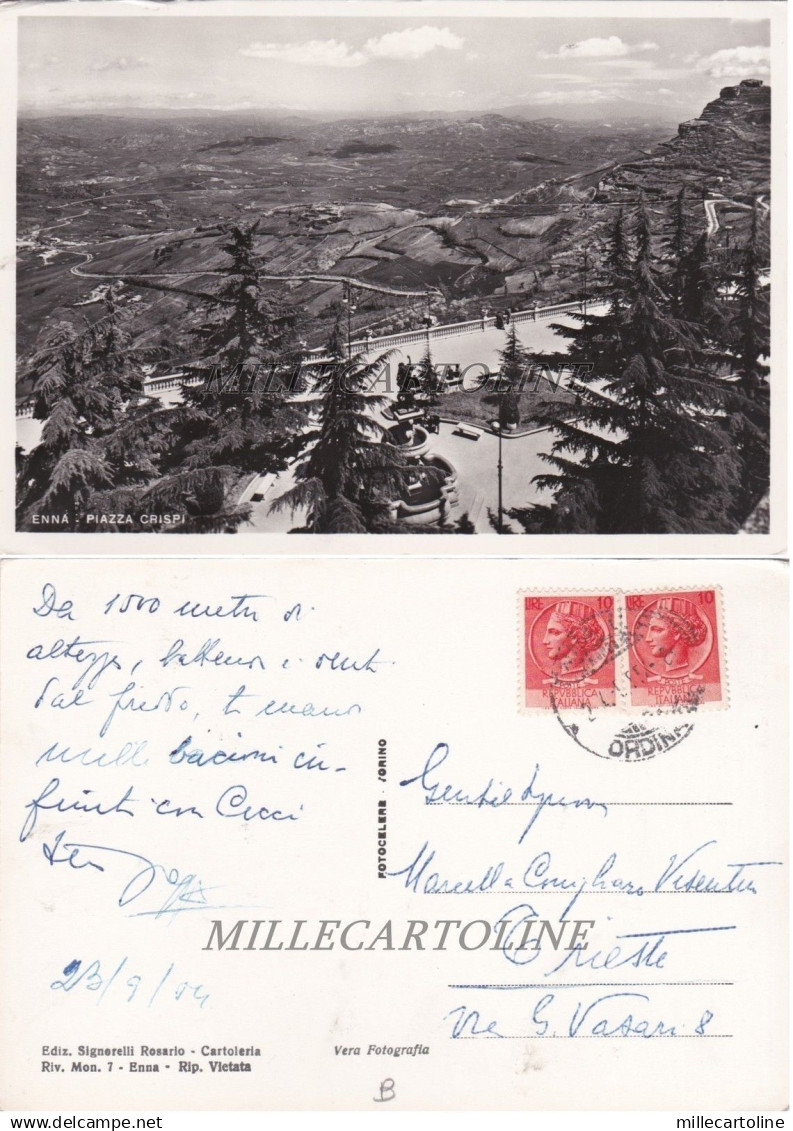 MILLECARTOLINE
ENNA - PIAZZA CRISPI
Da 1000 metri di
altezza, battendo i denti
dal freddo, ti mando
mille bacioni in-
finiti con Cicci
23/9/54
LIRE 10
LIRE 10
POSTE
REPVBBLICA
ITALIANA
REPVBBLICA
ITALIANA
ORDINA
FOTOCELERE - TORINO
Gentile Signora
Marcella Conigliaro Visentin
MILLECARTOLINE
Trieste
Via G. Vasari 8
Ediz. Signorelli Rosario - Cartoleria
Riv. Mon. 7 - Enna - Rip. Vietata
Vera Fotografia
B
www.delcampe.net
millecartoline